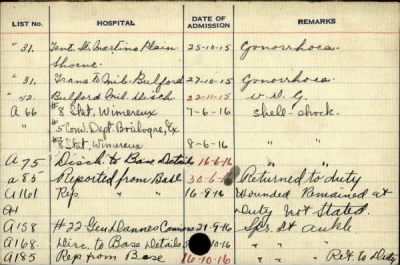 LIST No. HOSPITAL DATE OF ADMISSION REMARKS
" 31. Tent St. Martins Plain 25-10-15 Gonorrhoea
Shorne.
" 31. Trans to Mil. Bulford 27-10-15 Gonorrhoea.
" 42. Bulford Mil. Disch 22-11-15 V.D.G.
A 66 #8 Stat. Wimereux 7-6-16 Shell-shock.
#5 Con. Dept. Boulogne, Ex
#8 Stat. Wimereux 8-6-16 " "
A75 Disch. to Base Details 16-6-16 " "
a85 Reported from Base 30-6-16 Returned to duty
A161 Rep. " " 16-9-16 Wounded Remained at
Duty Not Stated.
A158 #22 Gen Dannes Camiers 21-9-16 Spr. Lt ankle
A168. Disc. to Base Details 10-16 " "
A185 Rep from Base 16-10-16 " " Ret to Duty